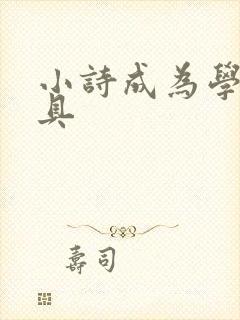 小詩成為學
具
壽司